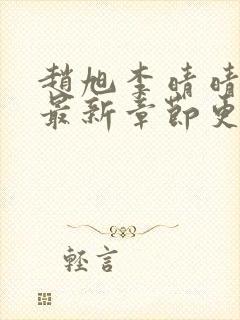 趙旭李晴晴
最新章節更
輕言